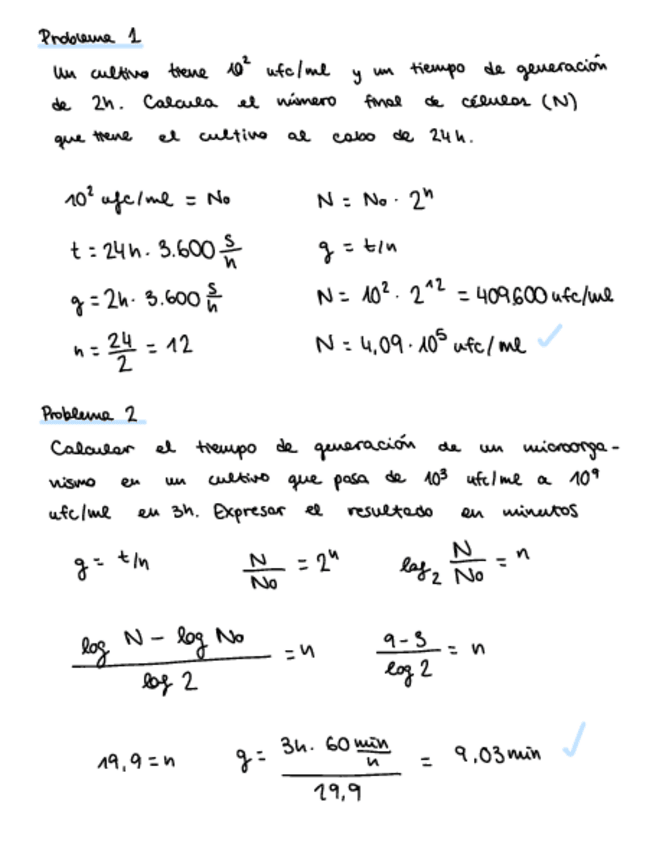 Problema 1
Un cultivo tiene 10² ufc/ml y un tiempo de generación
de 2h. Calcula el número final de células (N)
que tiene el cultivo al cabo de 24h.
10² ufc/ml = No N = No · 2ⁿ
t = 24h · 3.600 s/h g = t/n
g = 2h · 3.600 s/h N = 10² · 2¹² = 409.600 ufc/ml
n = 24/2 = 12 N = 4,09 · 10⁵ ufc/ml ✓
Problema 2
Calcular el tiempo de generación de un microorga-
nismo en un cultivo que pasa de 10³ ufc/ml a 10⁹
ufc/ml en 3h. Expresar el resultado en minutos
g = t/n N/No = 2ⁿ log₂ N/No = n
(log N - log No)/log 2 = n (9-3)/log 2 = n
19,9 = n g = (3h · 60 min/h)/19,9 = 9,03 min ✓